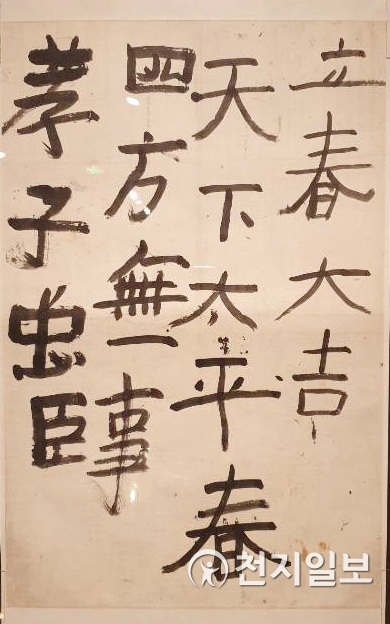 立春大吉
天下太平春
四方無一事
孝子忠臣
천지일보